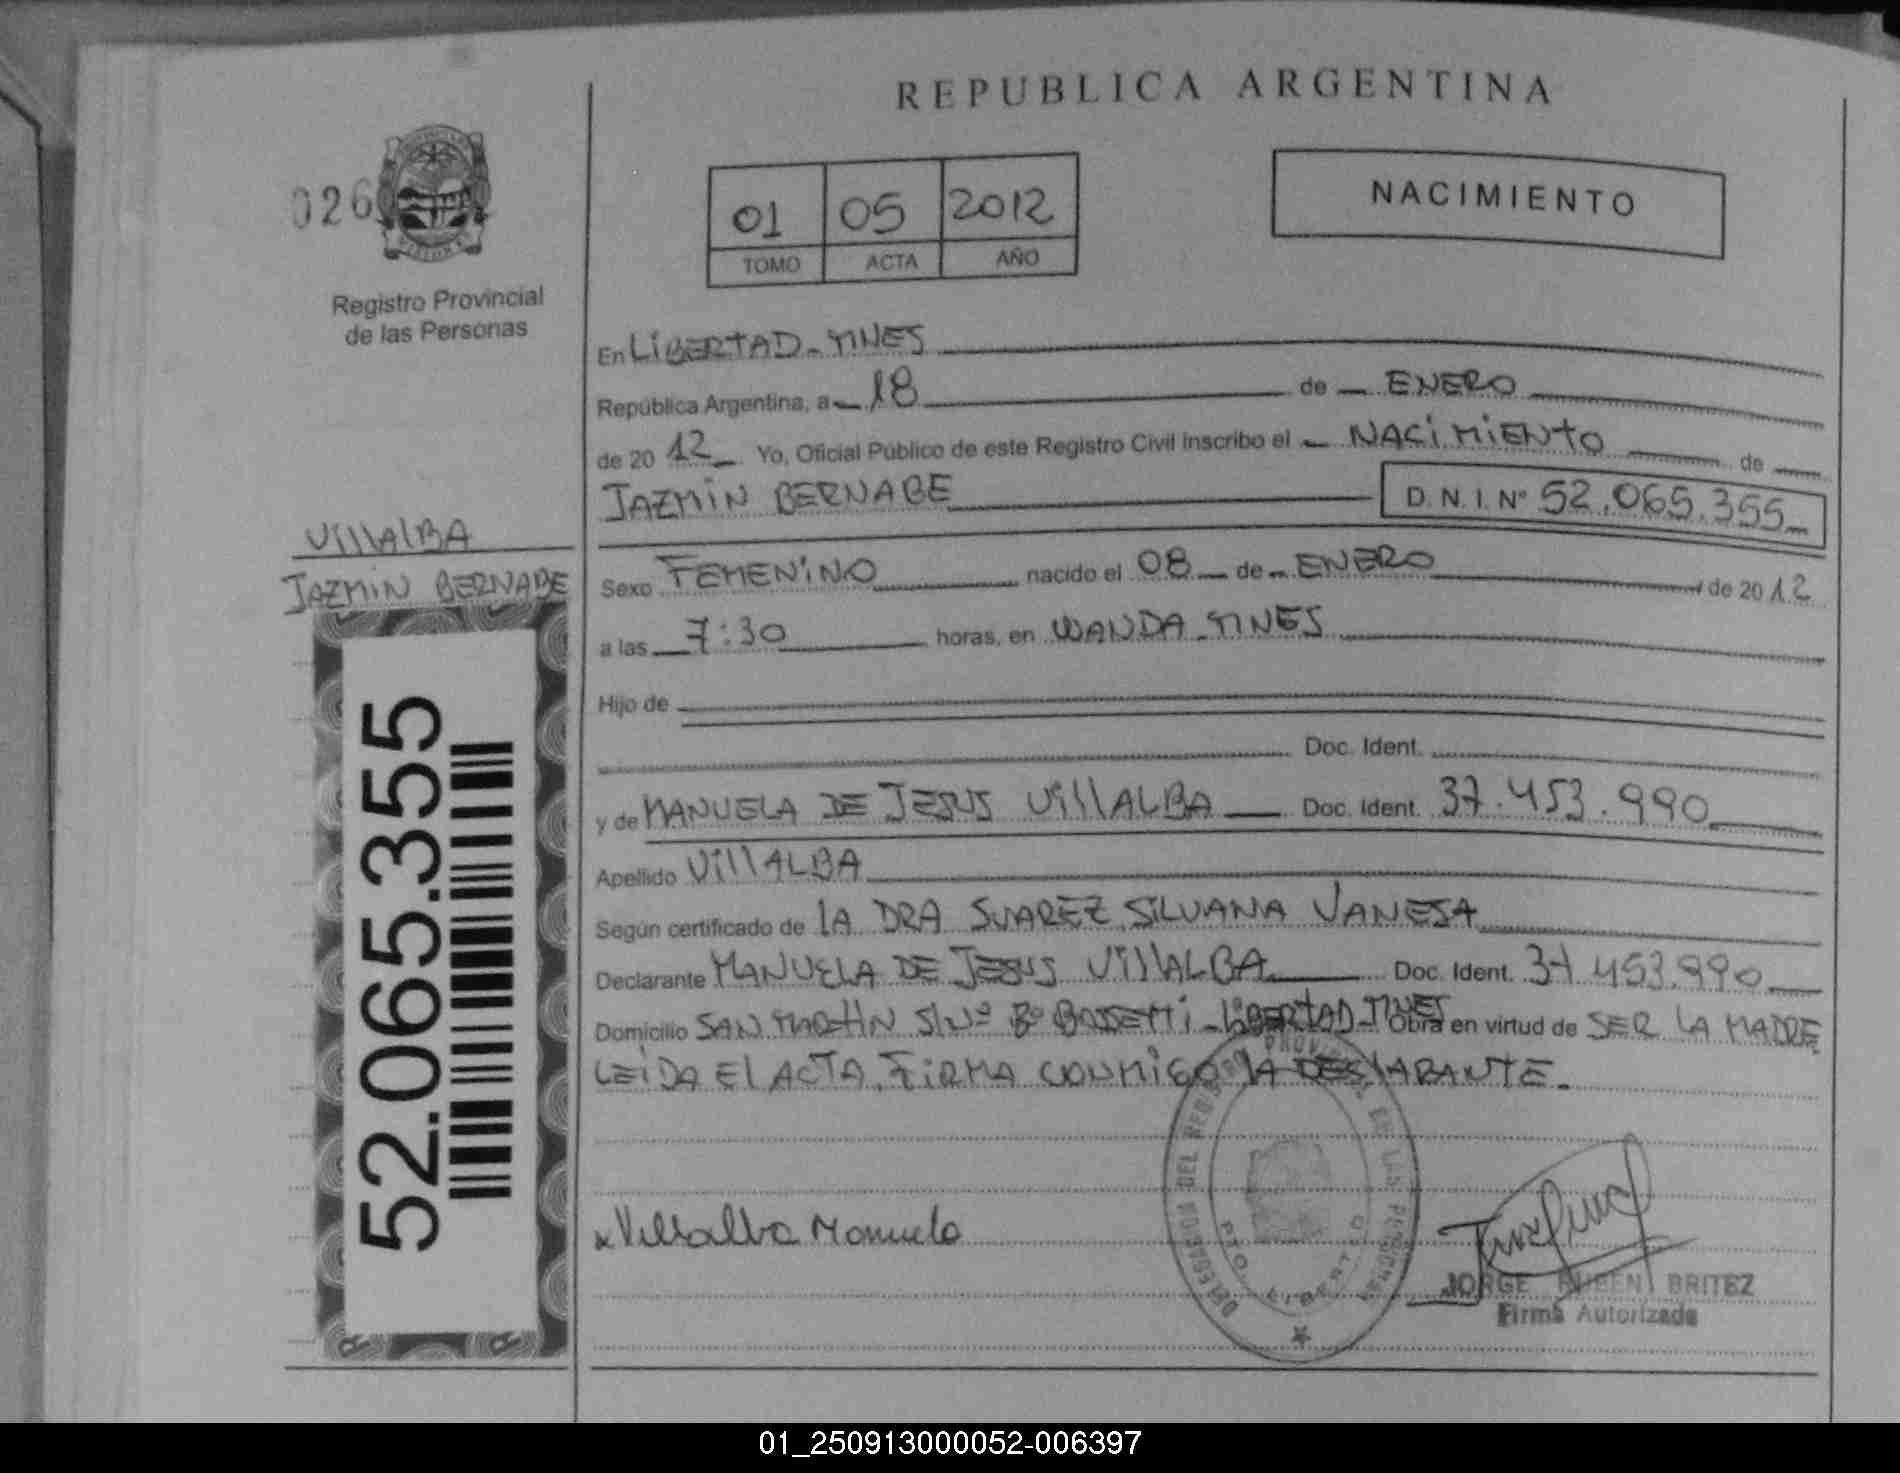 REPUBLICA ARGENTINA
026
01 05 2012
TOMO ACTA AÑO
NACIMIENTO
Registro Provincial
de las Personas
En LIBERTAD - MNES
República Argentina, a 18 de ENERO
de 2012 Yo, Oficial Público de este Registro Civil inscribo el NACIMIENTO de
JAZMIN BERNABE D.N.I. Nº 52.065.355
VILLALBA
JAZMIN BERNABE
Sexo FEMENINO nacido el 08 de ENERO de 2012
a las 7:30 horas, en WANDA - MNES
Hijo de
Doc. Ident.
y de MANUELA DE JESUS VILLALBA Doc. Ident. 37.453.990
Apellido VILLALBA
Según certificado de LA DRA SUAREZ SILVANA VANESA
Declarante MANUELA DE JESUS VILLALBA Doc. Ident. 37.453.990
Domicilio SAN MARTIN S/Nº Bº - LIBERTAD - MNES Obra en virtud de SER LA MADRE
LEIDA El ACTA, FIRMA CONMIGO LA DESLARANTE.
52.065.355
x Villalba Manuela
DELEGACION DEL REGISTRO PROVINCIAL DE LAS PERSONAS
PTO. LIBERTAD
JORGE RUBEN BRITEZ
Firma Autorizada
01_250913000052-006397